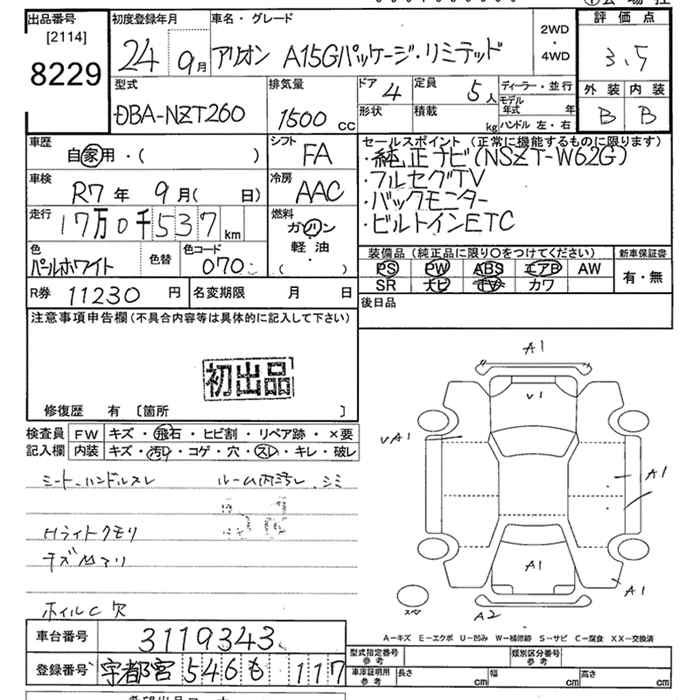 出品番号
[2114]
8229
初度登録年月
24 9月
車名・グレード
アリオン A15Gパッケージ・リミテッド
2WD
・
4WD
評価点
3.5
外装 内装
B B
型式
DBA-NZT260
排気量
1500 cc
ドア 4
形状
定員 5人
積載 kg
ディーラー・並行
モデル年式 年
ハンドル 左・右
車歴
自家用・( )
シフト
FA
車検
R7年 9月( 日)
冷房
AAC
走行
17万0千537km
燃料
ガソリン
軽油
( )
色
パールホワイト
色替
色カラーコード
070
R券 11230 円
名変期限 月 日
セールスポイント (正常に機能するものに限ります)
・純正ナビ(NSZT-W62G)
・フルセグTV
・バックモニター
・ビルトインETC
装備品 (純正品に限り〇をつけてください)
新車保証書
PS PW ABS エアB AW
SR ナビ TV カワ
有・無
後日品
注意事項申告欄 (不具合内容等は具体的に記入して下さい)
初出品
修復歴 有 〔箇所 〕
検査員記入欄
FW キズ・飛石・ヒビ割・リペア跡・×要
内装 キズ・汚れ・コゲ・穴・スレ・キレ・破レ
シート、ハンドルスレ ルーム内汚レ、シミ
Hライトクモリ
キズ
ホイルC 欠
A1
V1
VA1
A1
A1
A1
A2
スペア
A-キズ E-エクボ U-凹み W-補修跡 S-サビ C-腐食 XX-交換済
車台番号 3119343
登録番号 宇都宮 546 も 117
型式指定番号 参考
類別区分番号 参考
車庫証明用 参考
長さ cm
幅 cm
高さ cm